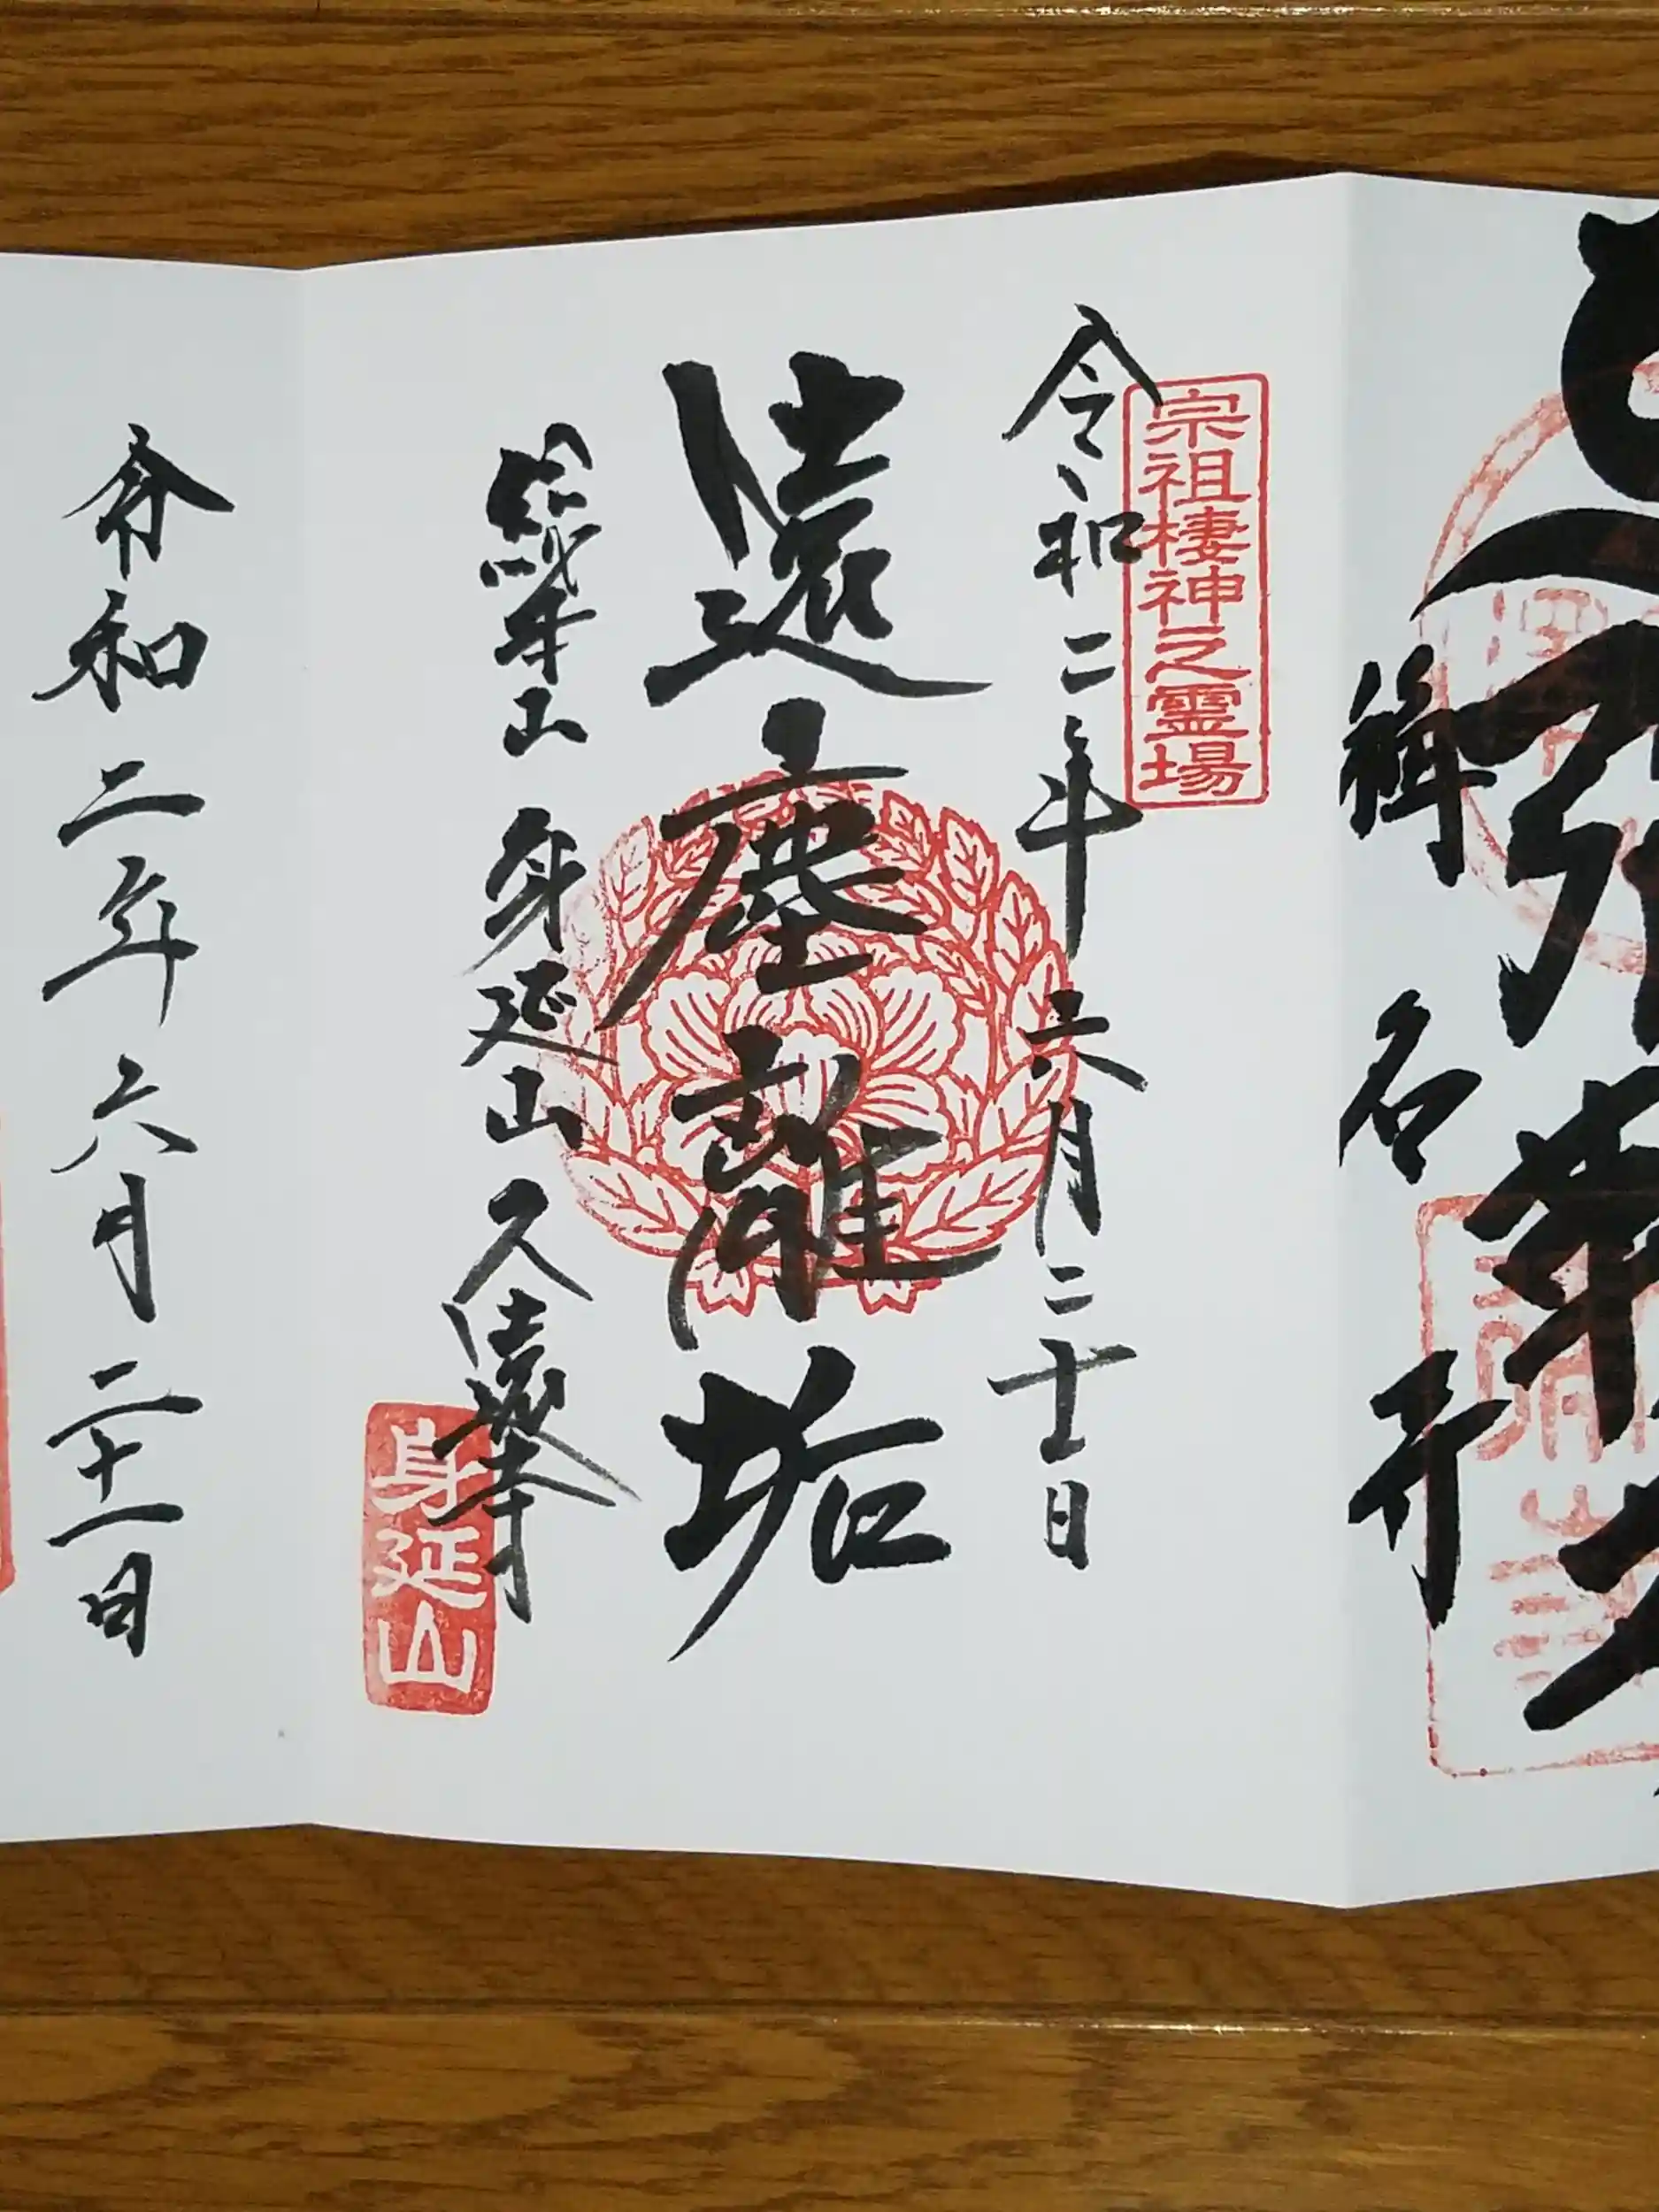 稱名行
宗祖棲神之霊場
令和二年六月二十日
遠塵離垢
総本山 身延山 久遠寺
身延山
令和二年六月二十一日